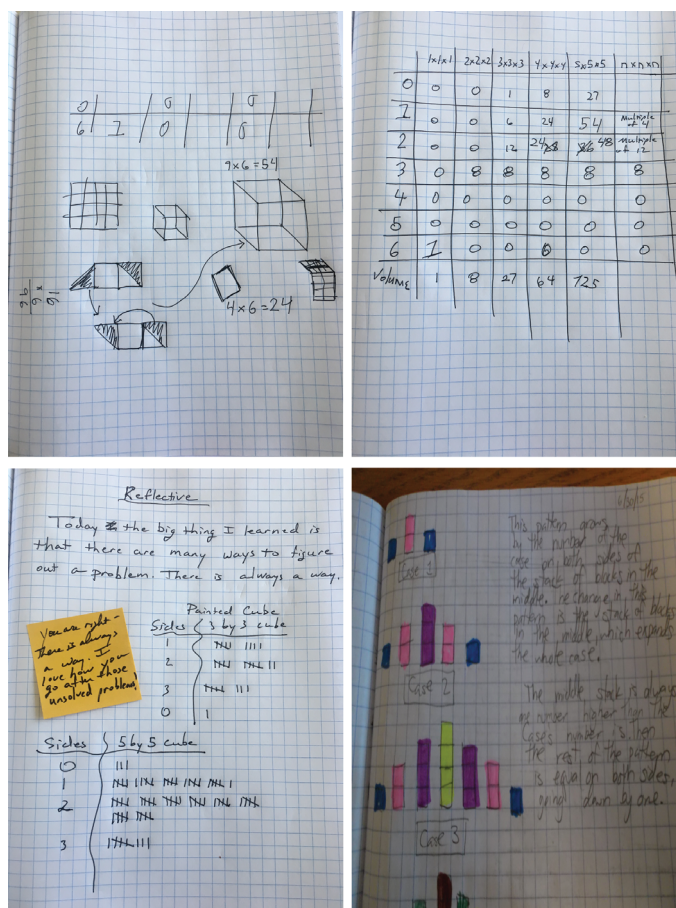 0 0 0
6 1 0 0
9x6=54
96
9x
91
4x6=24
1x1x1 2x2x2 3x3x3 4x4x4 5x5x5 nxnxn
0 0 0 1 8 27
1 0 0 6 24 54 multiple of 4
2 0 0 12 24 48 multiple of 12
3 0 8 8 8 8 8
4 0 0 0 0 0 0
5 0 0 0 0 0 0
6 1 0 0 0 0 0
Volume 1 8 27 64 125
Reflective
Today the big thing I learned is
that there are many ways to figure
out a problem. There is always a way.
You are right -
there is always
a way. I
love how you
go after those
unsolved problems!
Painted Cube
Sides 3 by 3 cube
1
2
3
0
Sides 5 by 5 cube
0
1
2
3
6/30/15
Case 1
This pattern grows
by the number of the
case on both sides of
the stack of blocks in the
middle. The change in the
pattern is the stack of blocks
in the middle, which expands
the whole case.
Case 2
The middle stack is always
one number higher than the
cases number is, then
the rest of the pattern
is equal on both sides,
going down by one.
Case 3